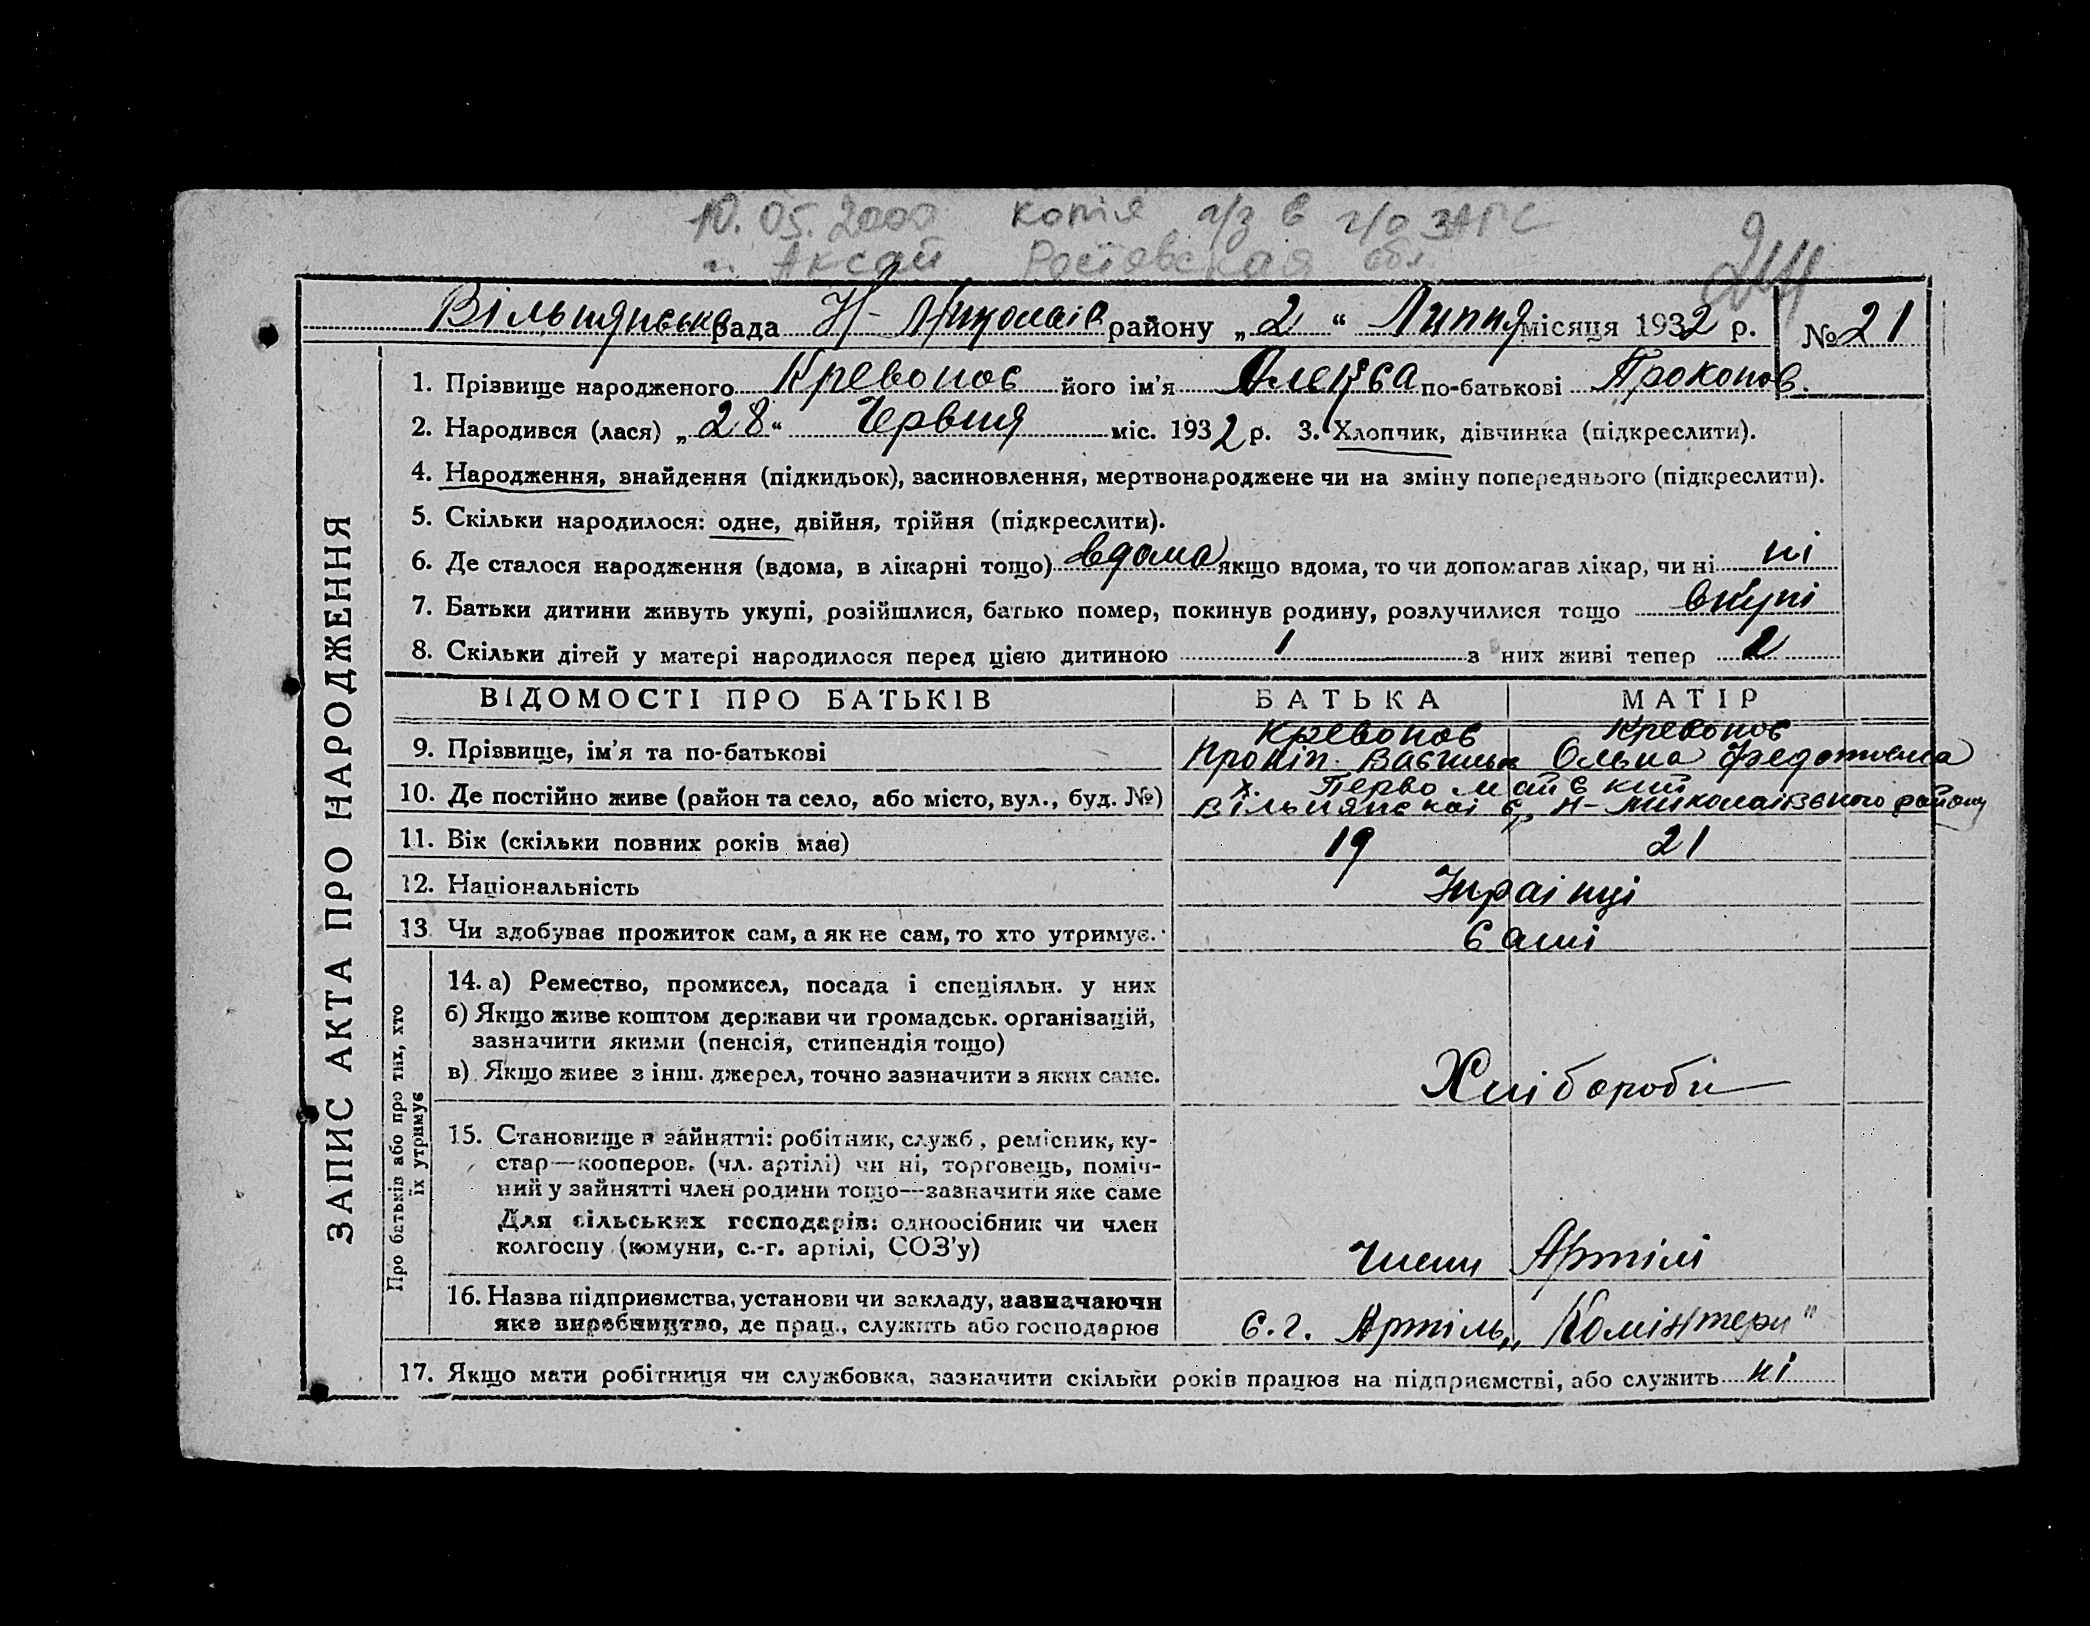 10.05.2000 копія а/з в г/о ЗАГС
г. Аксай Ростовская обл.
Вільнянська рада Н-Миколаїв району „2“ Липня місяця 1932 р. № 21
1. Прізвище народженого Кревонос його ім'я по-батькові Прокопов.
2. Народився (лася) „28“ Червня міс. 1932 р. 3. Хлопчик, дівчинка (підкреслити).
4. Народження, знайдення (підкидьок), засиновлення, мертвонароджене чи на зміну попереднього (підкреслити).
5. Скільки народилося: одне, двійня, трійня (підкреслити).
6. Де сталося народження (вдома, в лікарні тощо) вдома якщо вдома, то чи допомагав лікар, чи ні ні
7. Батьки дитини живуть укупі, розійшлися, батько помер, покинув родину, розлучилися тощо вкупі
8. Скільки дітей у матері народилося перед цією дитиною 1 з них живі тепер 2
ЗАПИС АКТА ПРО НАРОДЖЕННЯ
ВІДОМОСТІ ПРО БАТЬКІВ БАТЬКА МАТІР
9. Прізвище, ім'я та по-батькові Кревонос Прокіп Васильов Кревонос Ольна Федотівна
10. Де постійно живе (район та село, або місто, вул., буд. №) х. Первомайський
Вільнянскоі с/р Н-Миколаівського району
11. Вік (скільки повних років має) 19 21
12. Національність Украінці
13. Чи здобував прожиток сам, а як не сам, то хто утримує. Самі
Про батьків або про тих, хто
їх утримує
14. а) Ремество, промисел, посада і спеціяльн. у них
б) Якщо живе коштом держави чи громадськ. організацій,
зазначити якими (пенсія, стипендія тощо)
в) Якщо живе з інш. джерел, точно зазначити з яких саме.
Хлібороби
15. Становище в зайнятті: робітник, служб., ремісник, ку-
стар—кооперов. (чл. артілі) чи ні, торговець, поміч-
ний у зайнятті член родини тощо—зазначити яке саме
Для сільських господарів: одноосібник чи член
колгоспу (комуни, с.-г. артілі, СОЗ'у)
Члени Артілі
16. Назва підприємства, установи чи закладу, зазначаючи
яке виробництво, де прац., служить або господарює
с.г. Артіль „Комінтерн"
17. Якщо мати робітниця чи службовка, зазначити скільки років працює на підприємстві, або служить ні